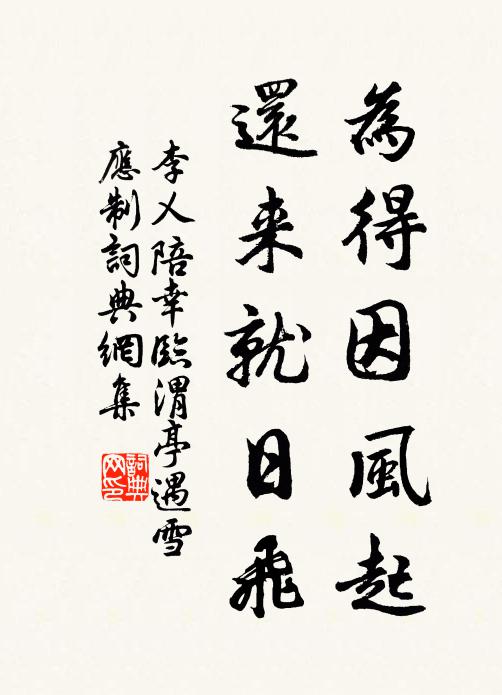 為得因風起
還来就日飛
李乂陪幸臨渭亭遇雪
應制詞典網集
詞典
网印